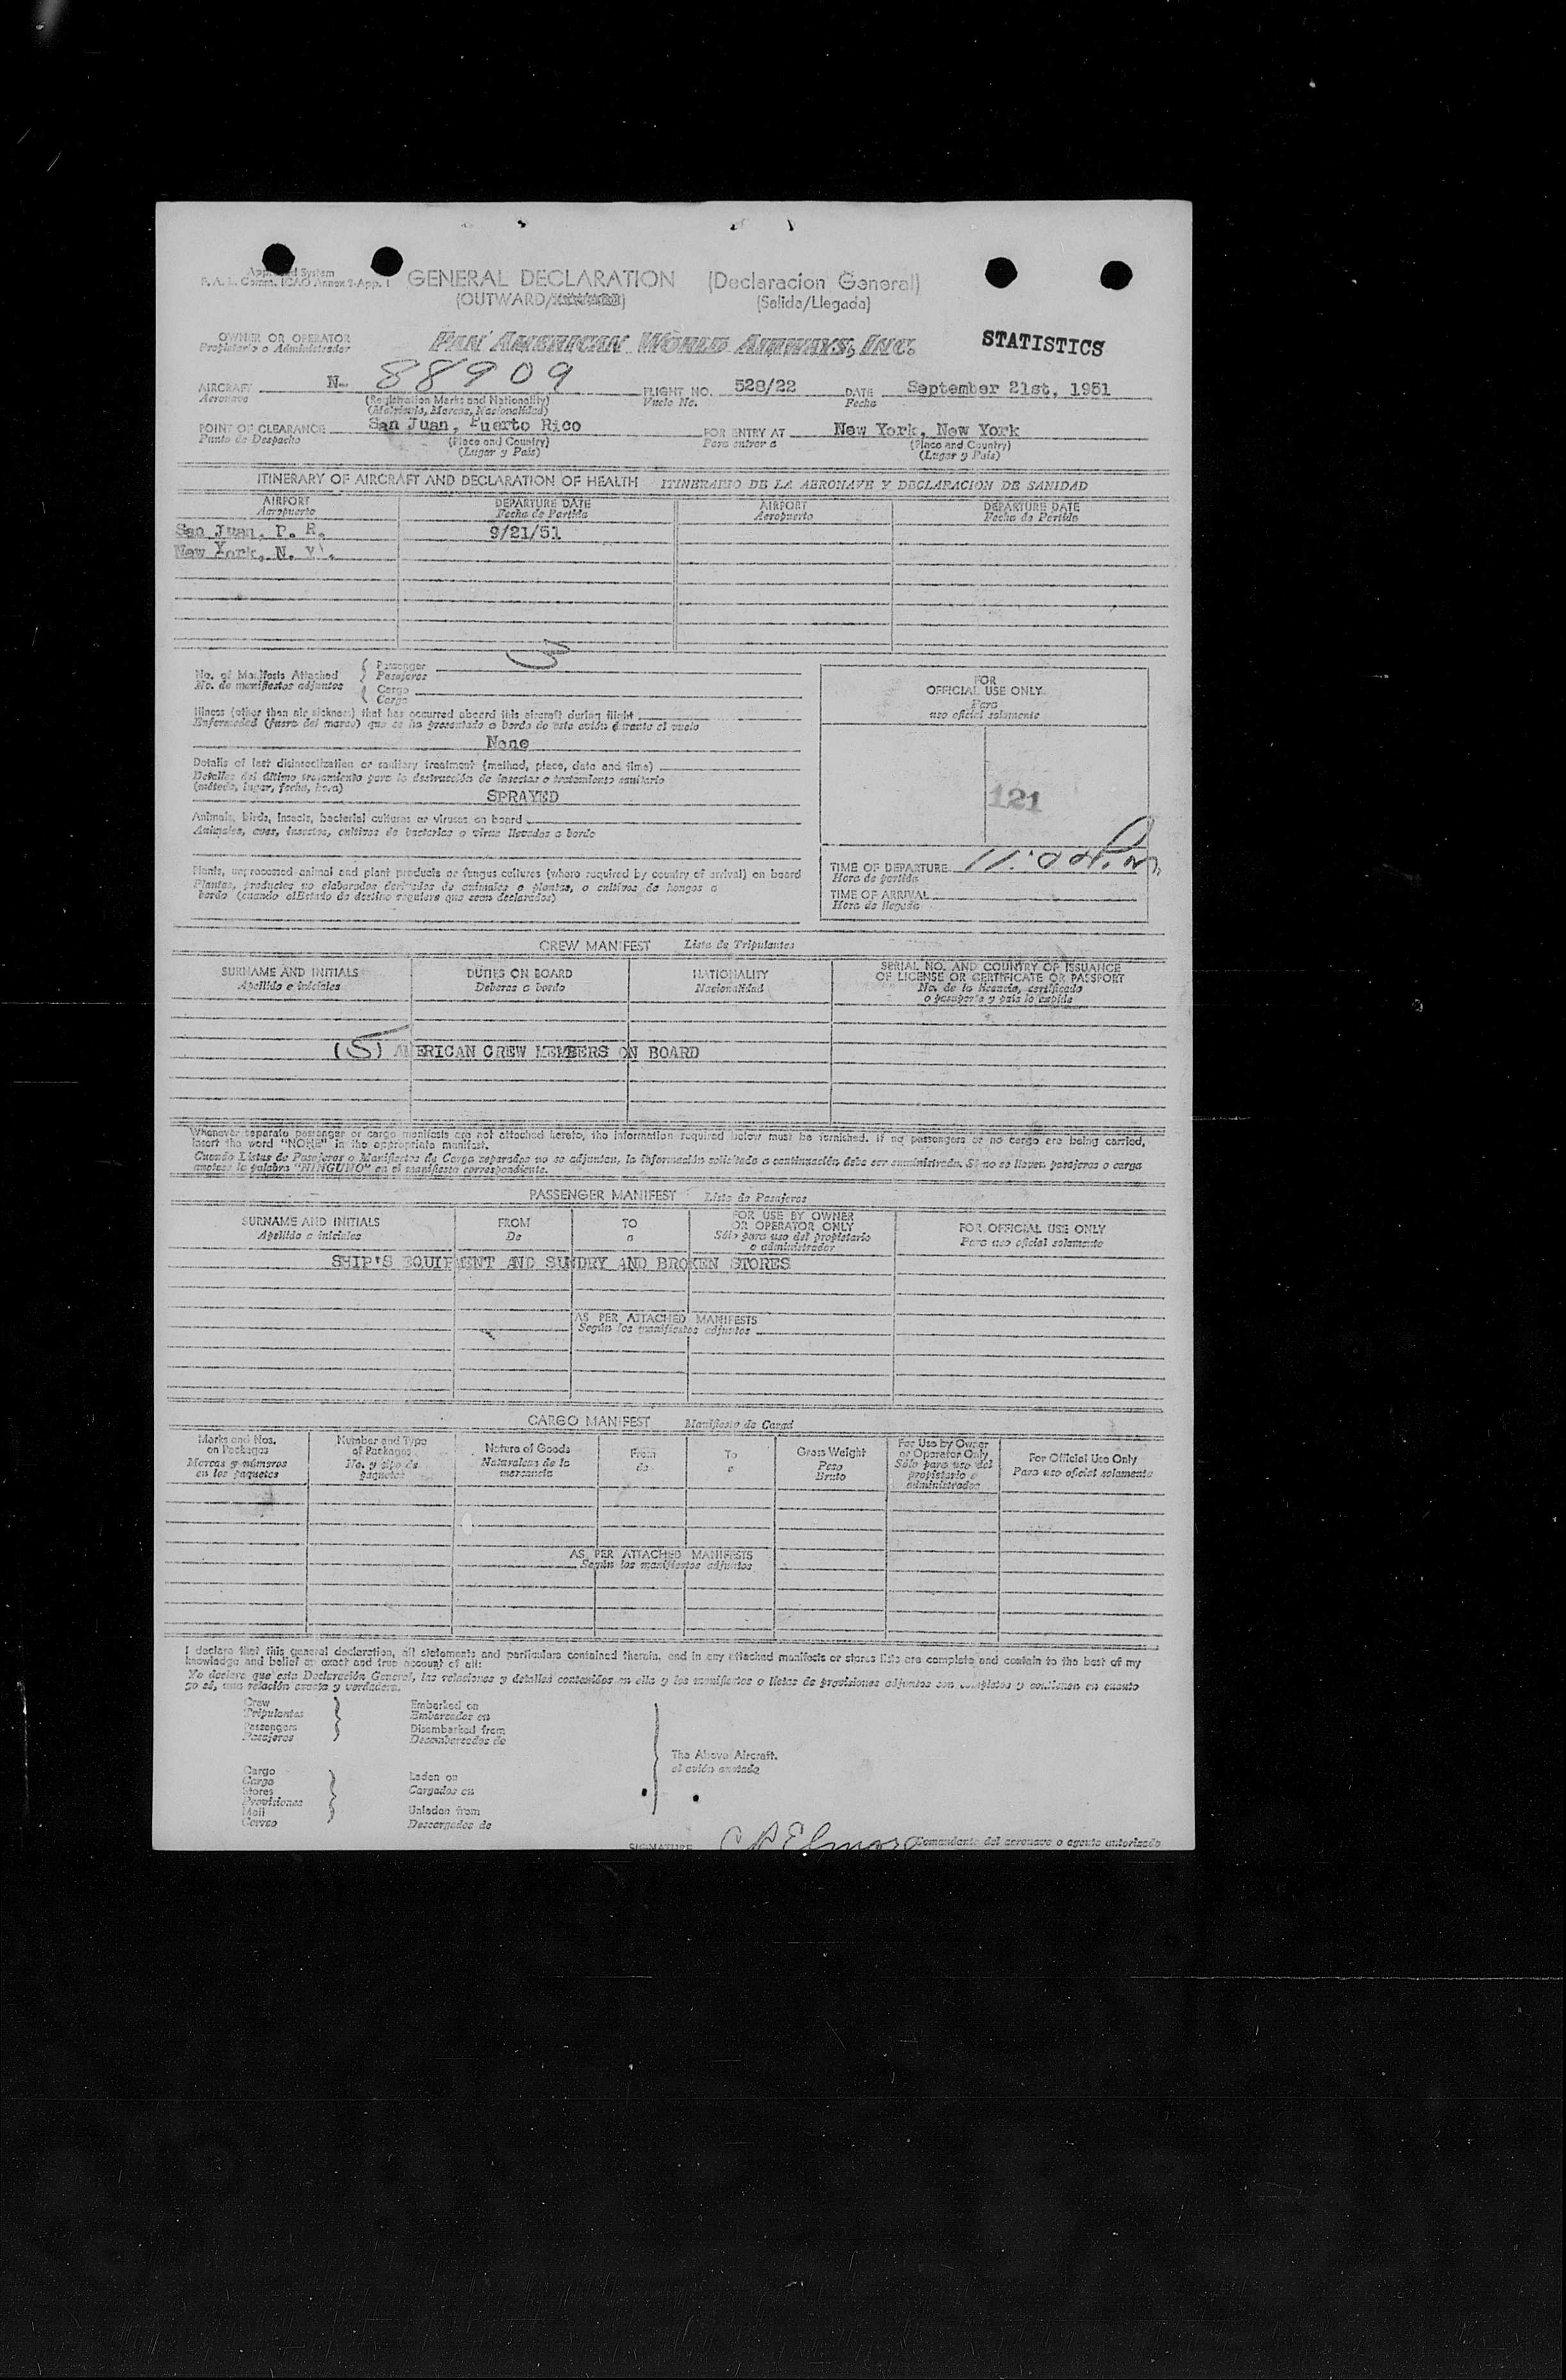 GENERAL DECLARATION (Declaracion General)
(OUTWARD/ (Salida/Llegada)
OWNER OR OPERATOR
Propietario o Administrador
PAN AMERICAN WORLD AIRWAYS, INC.
STATISTICS
AIRCRAFT N- 88909 FLIGHT NO. 528/22 DATE September 21st, 1951
Aeronave (Registration Marks and Nationality) Vuelo No. Fecha
(Matricula, Marcas, Nacionalidad)
POINT OF CLEARANCE San Juan, Puerto Rico FOR ENTRY AT New York, New York
Punto de Despacho (Place and Country) Para entrar a (Place and Country)
(Lugar y Pais) (Lugar y Pais)
ITINERARY OF AIRCRAFT AND DECLARATION OF HEALTH ITINERARIO DE LA AERONAVE Y DECLARACION DE SANIDAD
AIRPORT DEPARTURE DATE AIRPORT DEPARTURE DATE
Aeropuerto Fecha de Partida Aeropuerto Fecha de Partida
San Juan, P. R. 9/21/51
New York, N. Y.
No. of Manifests Attached Passenger 3
No. de manifiestos adjuntos Pasajeros
Cargo
Carga
Illness (other than air sickness) that has occurred aboard this aircraft during flight
Enfermedad (fuera del mareo) que se ha presentado a bordo de este avión durante el vuelo
None
Details of last disinsectization or sanitary treatment (method, place, date and time)
Detalles del último tratamiento para la destrucción de insectos o tratamiento sanitario
(método, lugar, fecha, hora)
SPRAYED
Animals, birds, insects, bacterial cultures or viruses on board
Animales, aves, insectos, cultivos de bacterias o virus llevados a bordo
Plants, unprocessed animal and plant products or fungus cultures (where required by country of arrival) on board
Plantas, productos no elaborados derivados de animales o plantas, o cultivos de hongos a
bordo (cuando el Estado de destino requiere que sean declarados)
FOR
OFFICIAL USE ONLY
Para
uso oficial solamente
121
TIME OF DEPARTURE
Hora de partida
TIME OF ARRIVAL
Hora de llegada
CREW MANIFEST Lista de Tripulantes
SURNAME AND INITIALS DUTIES ON BOARD NATIONALITY SERIAL NO. AND COUNTRY OF ISSUANCE
OF LICENSE OR CERTIFICATE OR PASSPORT
Apellido e iniciales Deberes a bordo Nacionalidad No. de la licencia, certificado
o pasaporte y país lo expide
(5) AMERICAN CREW MEMBERS ON BOARD
Whenever separate passenger or cargo manifests are not attached hereto, the information required below must be furnished. If no passengers or no cargo are being carried,
insert the word "NONE" in the appropriate manifest.
Cuando Listas de Pasajeros o Manifiestos de Carga separados no se adjuntan, la información solicitada a continuación debe ser suministrada. Si no se llevan pasajeros o carga
anótese la palabra "NINGUNO" en el manifiesto correspondiente.
PASSENGER MANIFEST Lista de Pasajeros
SURNAME AND INITIALS FROM TO FOR USE BY OWNER
OR OPERATOR ONLY FOR OFFICIAL USE ONLY
Apellido e iniciales De a Sólo para uso del propietario
o administrador Para uso oficial solamente
SHIP'S EQUIPMENT AND SUNDRY AND BROKEN STORES
AS PER ATTACHED MANIFESTS
Según los manifiestos adjuntos
CARGO MANIFEST Manifiesto de Carga
Marks and Nos.
on Packages
Marcas y números
en los paquetes
Number and Type
of Packages
No. y tipo de
paquetes
Nature of Goods
Naturaleza de la
mercancía
From
de
To
a
Gross Weight
Peso
Bruto
For Use by Owner
or Operator Only
Sólo para uso del
propietario o
administrador
For Official Use Only
Para uso oficial solamente
AS PER ATTACHED MANIFESTS
Según los manifiestos adjuntos
I declare that this general declaration, all statements and particulars contained therein, and in any attached manifests or stores lists are complete and contain to the best of my
knowledge and belief an exact and true account of all:
Yo declaro que esta Declaración General, las relaciones y detalles contenidos en ella y los manifiestos o listas de provisiones adjuntos son completos y contienen en cuanto
yo sé, una relación exacta y verdadera.
Crew Embarked on
Tripulantes Embarcados en
Passengers Disembarked from
Pasajeros Desembarcados de
The Above Aircraft.
el avión anotado
Cargo Laden on
Carga Cargados en
Stores
Provisiones
Mail Unladen from
Correo Descargados de
SIGNATURE C A Elmore Comandante del aeronave o agente autorizado